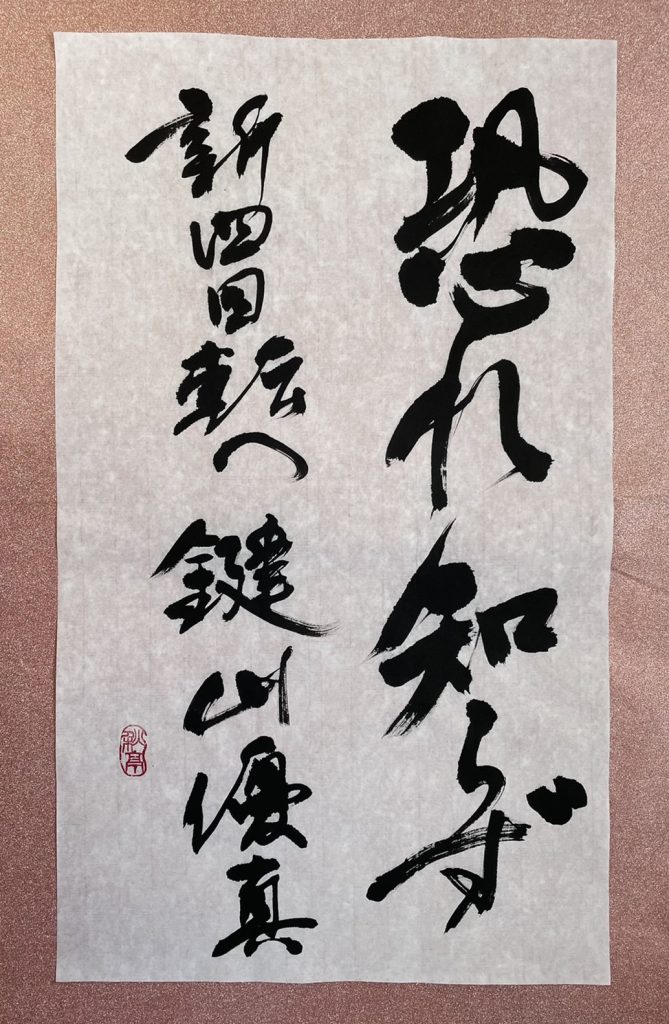 恐れ知らず
新四回転へ 鍵山優真